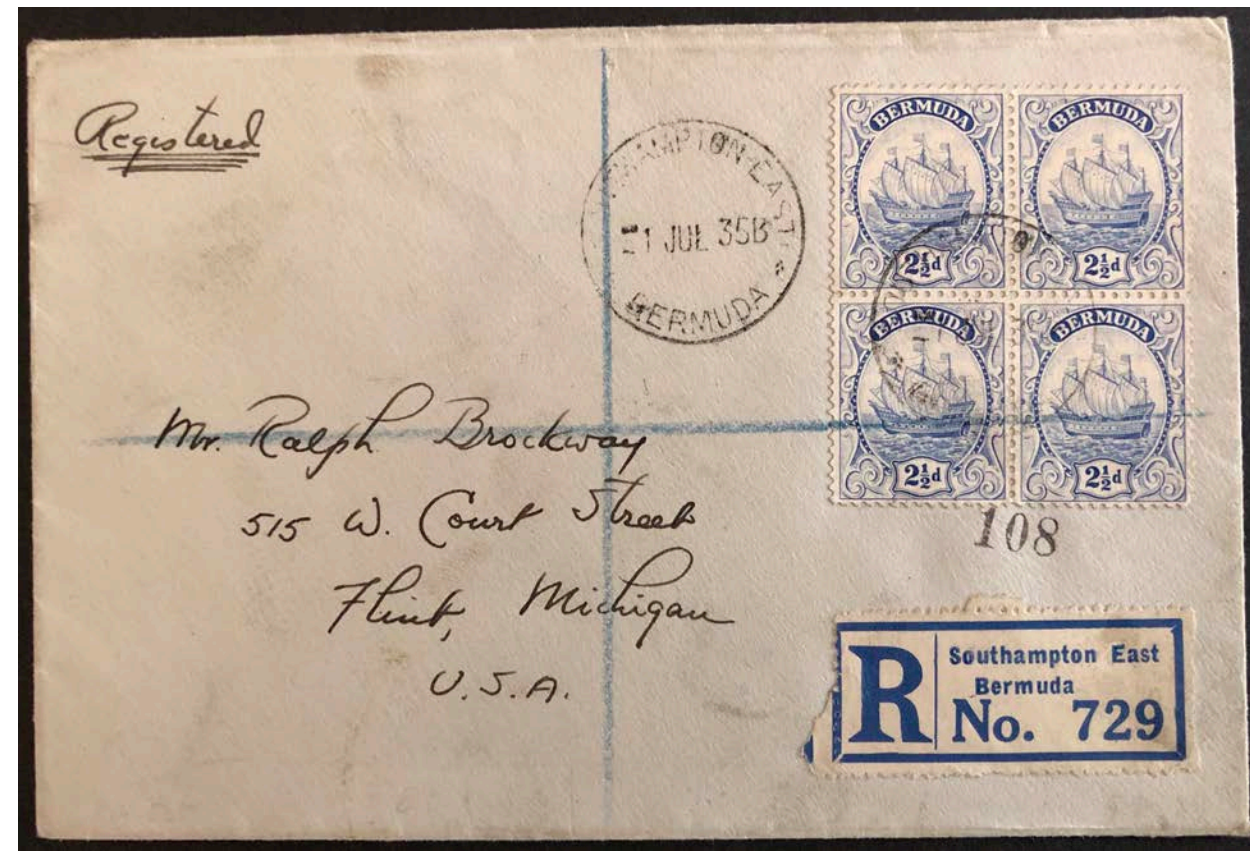 Registered
HAMPTON-EAST.
1 JUL 35B
BERMUDA *
BERMUDA
2½d
BERMUDA
2½d
BERMUDA
2½d
BERMUDA
2½d
108
Mr. Ralph Brockway
515 W. Court Street
Flint, Michigan
U.S.A.
R
Southampton East
Bermuda
No. 729